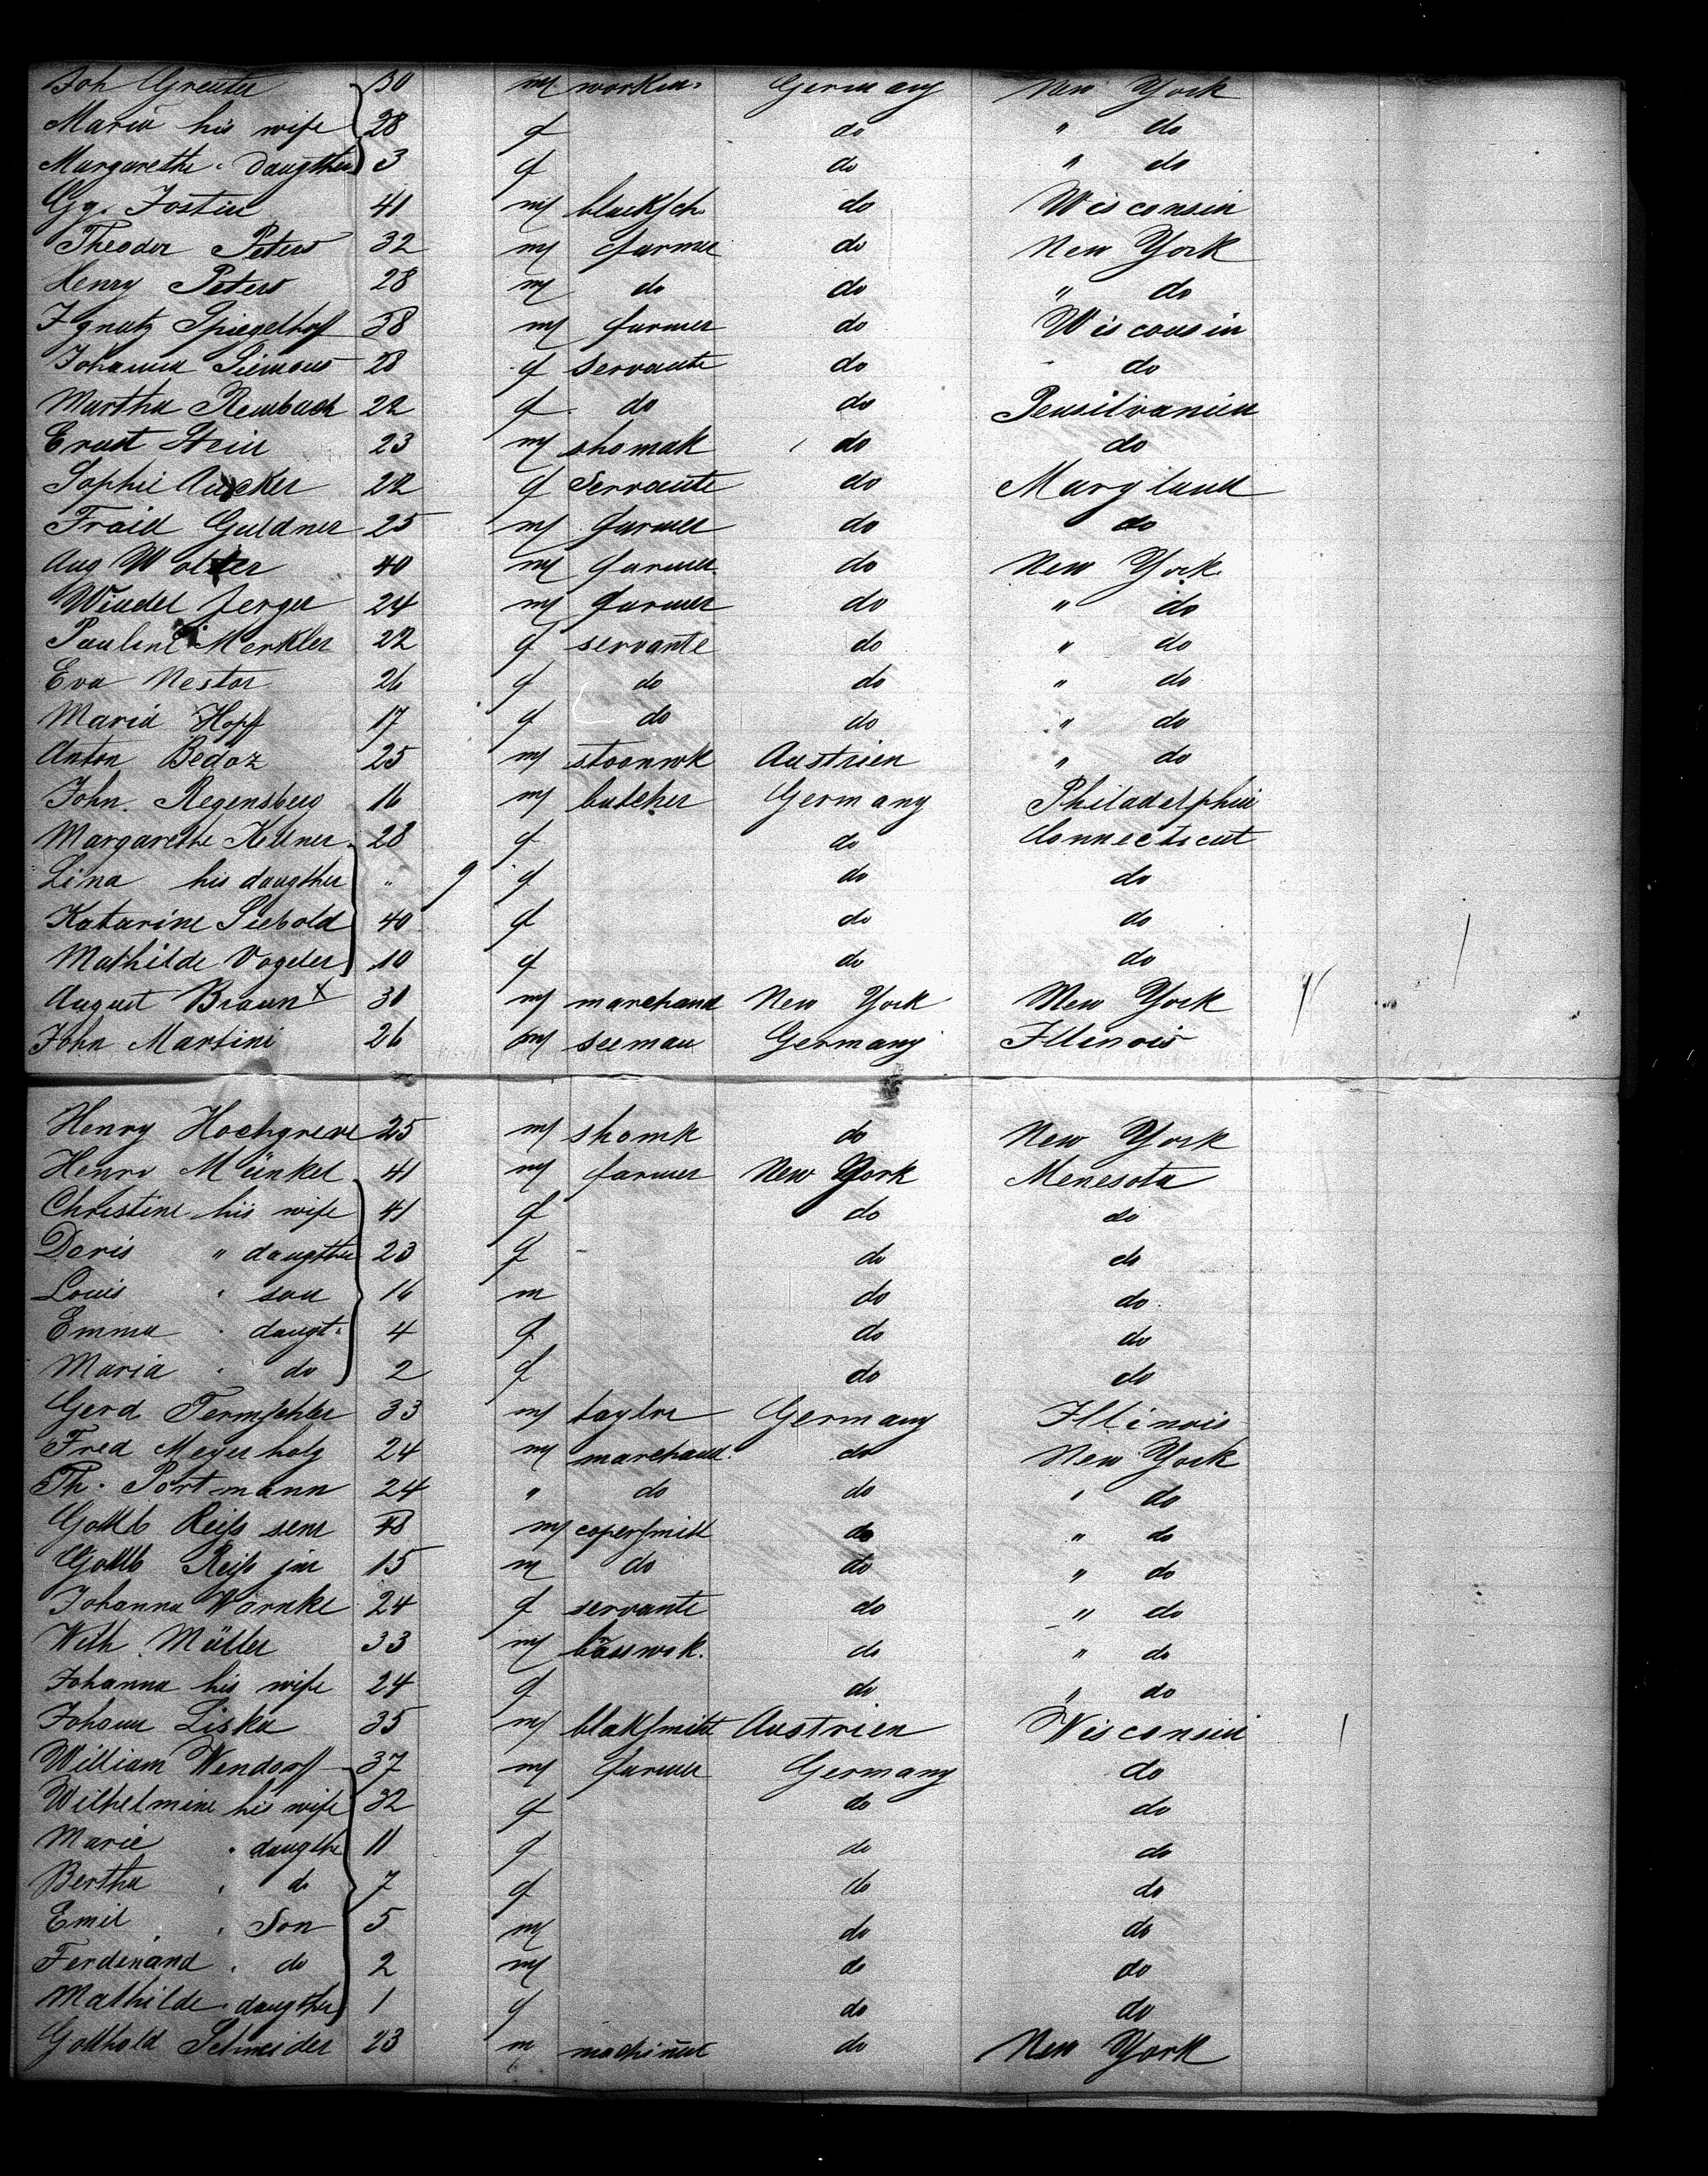 Joh Greuter 30 m workm. Germany New York
Maria his wife 28 f do " do
Margarethe " Daugther 3 f do " do
Gg. Jostin 41 m blacksch do Wisconsin
Theodor Peters 32 m farmer do New York
Henry Peters 28 m do do " do
Ignatz Spiegelhoff 38 m farmer do Wisconsin
Johanna Siemons 28 f servante do do
Martha Rembach 22 f do do Pensilvanien
Ernst Stein 23 m shomak do do
Sophie Aucker 22 f Servante do Maryland
Fraid Guldner 25 m farmer do do
Aug Wolter 40 m farmer do New York
Windel Jerger 24 m farmer do " do
Pauline Merkler 22 f servante do " do
Eva Nestor 26 f do do " do
Maria Hopf 17 f do do " do
Anton Bedoz 25 m stoonwk Austrien " do
John. Regensberg 16 m butcher Germany Philadelphia
Margarethe Kellner 28 f do Connecticut
Lina his daugther " 9 f do do
Katarine Siebold 40 f do do
Mathilde Vogeler 10 f do do
August Braun x 30 m marchand New York New York
John Martini 26 m seeman Germany Illinois
Henry Hochgreve 25 m shomk do New York
Henry Münkel 41 m farmer New York Menesota
Christine his wife 41 f do do
Doris " daugther 23 f do do
Louis " son 16 m do do
Emma " daugt. 4 f do do
Maria " do 2 f do do
Gerd Termsehler 33 m taylor Germany Illinois
Fred Meyerholz 24 m marchand do New York
Th. Portmann 24 " do do " do
Gottlb Reiss senr 48 m copersmitt do " do
Gottlb Reiss jur 15 m do do " do
Johanna Warnke 24 f servante do " do
Wilh Müller 33 m do " do
Johanna his wife 24 f do " do
Johann Liska 35 m blaksmitt Austrien Wisconsin
William Wendorff 37 m farmer Germany do
Wilhelmine his wife 32 f do do
Marie " daugthe 11 f do do
Bertha " do 7 f do do
Emil " Son 5 m do do
Ferdinand " do 2 m do do
Mathilde " daugther 1 f do do
Gotthold Schneider 23 m machinist do New York